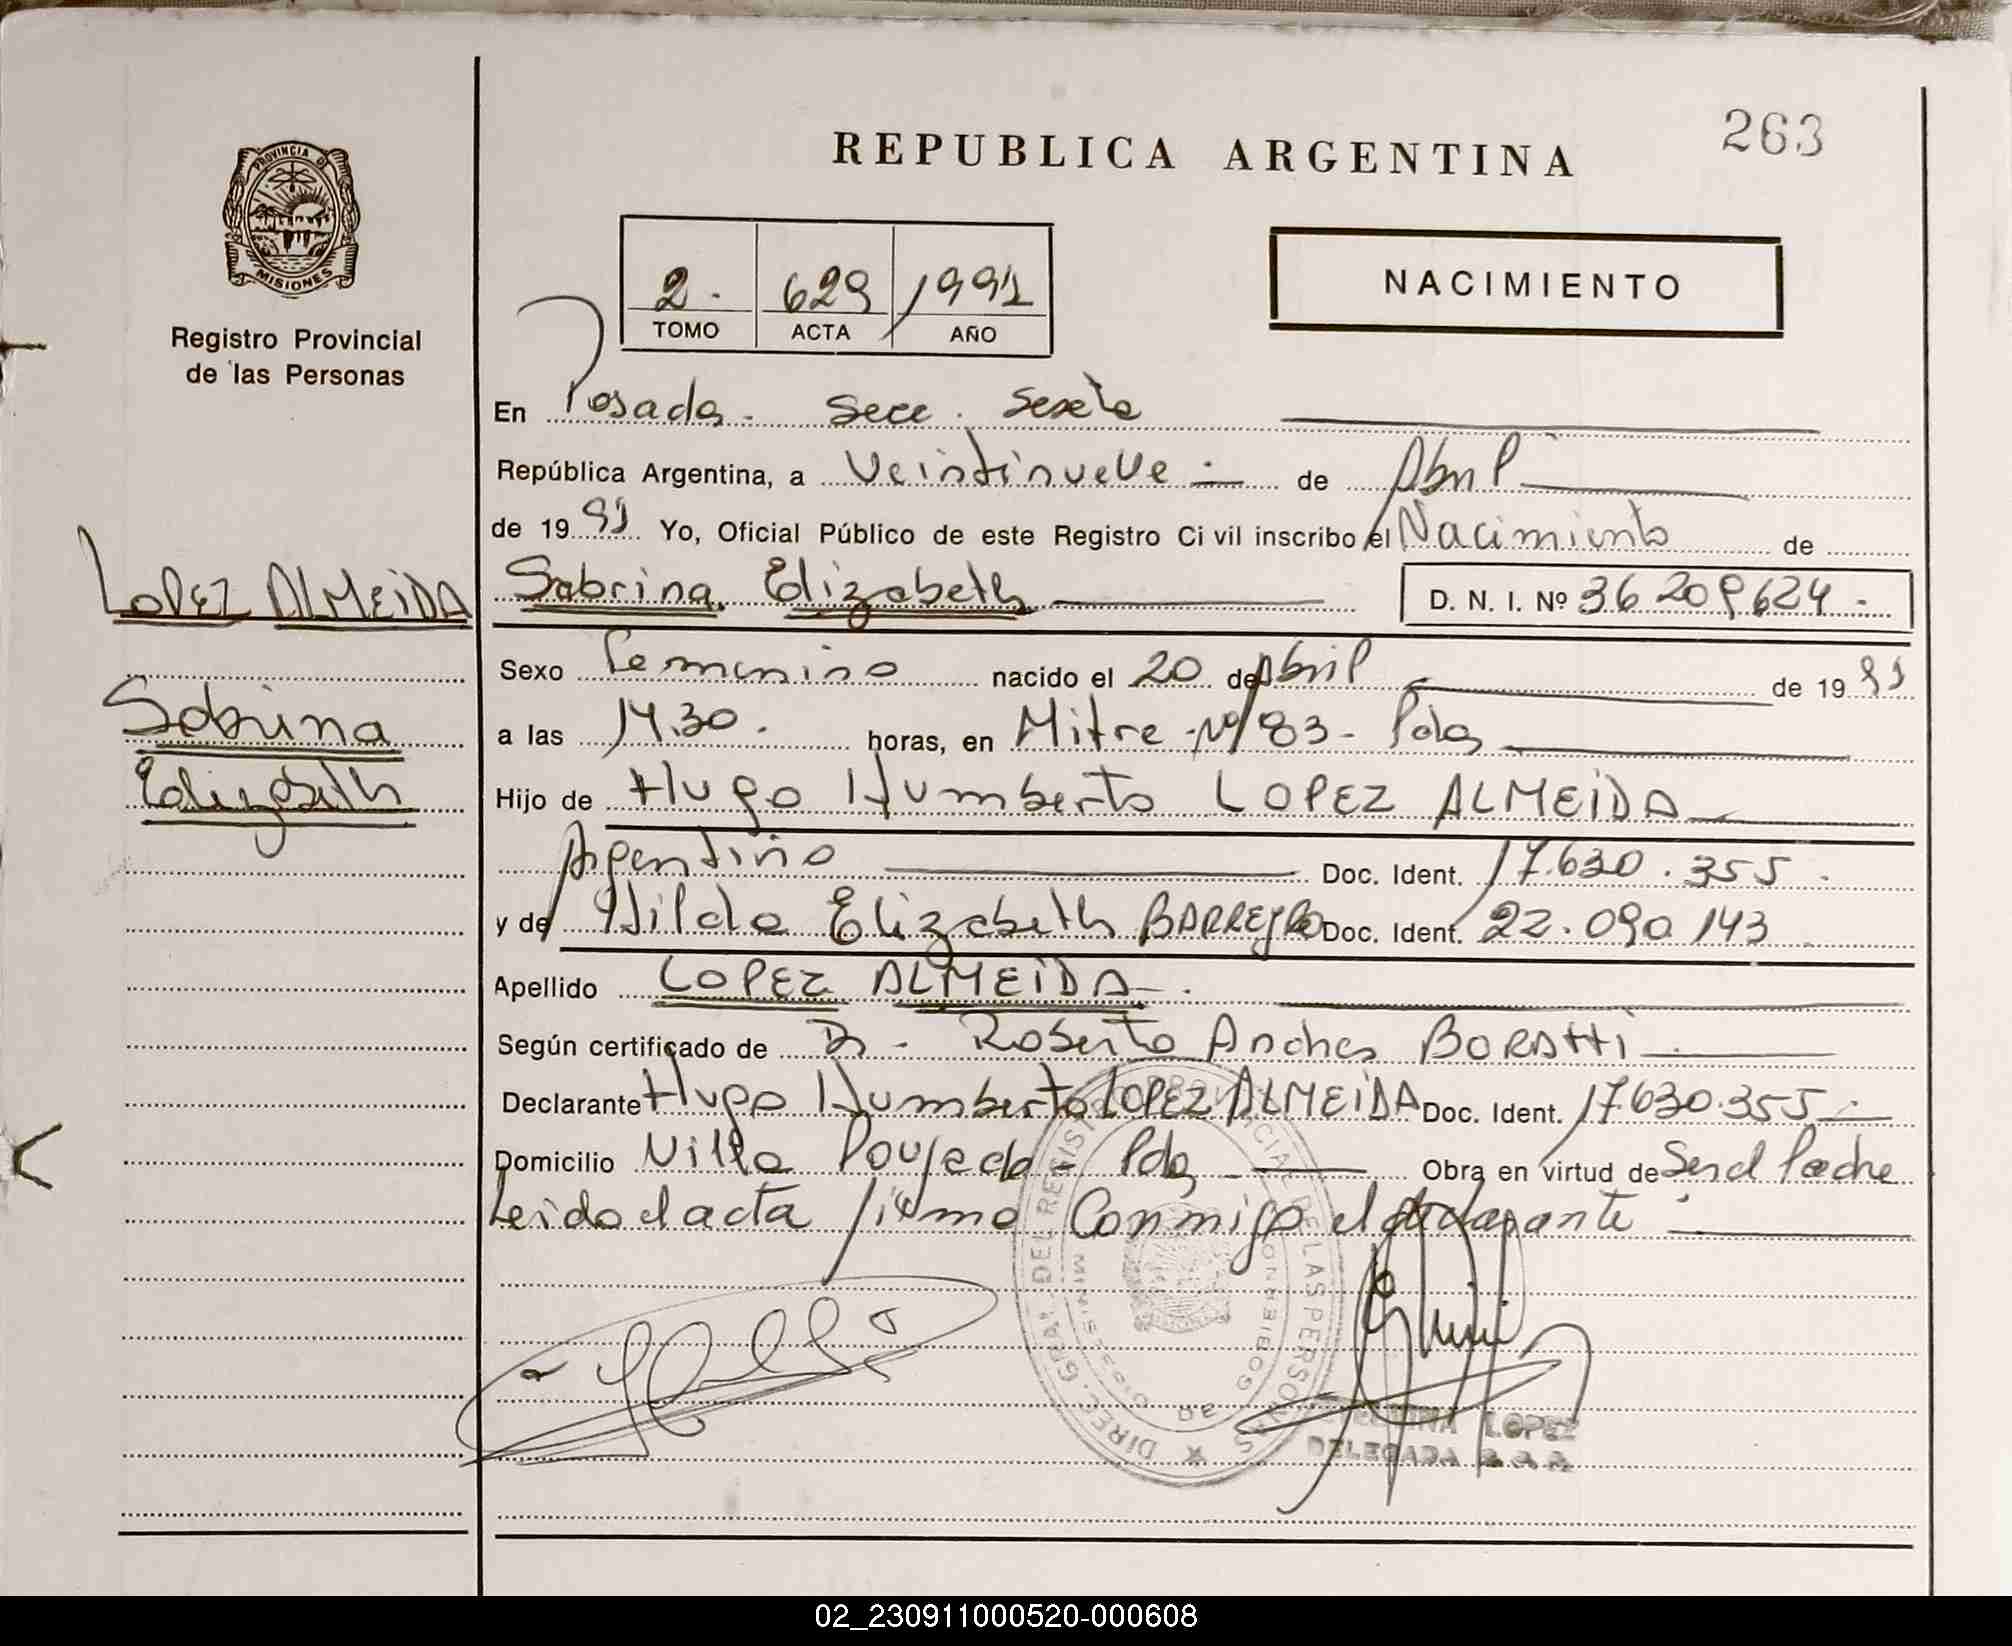 263
REPUBLICA ARGENTINA
PROVINCIA DE
MISIONES
Registro Provincial
de las Personas
2. 629 1991
TOMO ACTA AÑO
NACIMIENTO
En Posadas - Secc. Sexta
República Argentina, a Veintinueve de Abril
de 1991 Yo, Oficial Público de este Registro Civil inscribo el Nacimiento de
LOPEZ ALMEIDA
Sabrina Elizabeth
D. N. I. Nº 36 209 624 -
Sabrina
Elizabeth
Sexo Femenino nacido el 20 de Abril de 1991
a las 14.30. horas, en Mitre Nº 83 - Pdas
Hijo de Hugo Humberto LOPEZ ALMEIDA
Argentino Doc. Ident. 17.630.355.
y de Hilda Elizabeth BARREYRO Doc. Ident. 22.090.143
Apellido LOPEZ ALMEIDA - .
Según certificado de Dr. Roberto Andres
Declarante Hugo Humberto LOPEZ ALMEIDA Doc. Ident. 17.630.355
Domicilio Villa Poujade - Pdas Obra en virtud de Ser el Padre
Leida el acta firma Conmigo el declarante
DIREC. GRAL. DEL REGISTRO PROVINCIAL DE LAS PERSONAS
MINISTERIO DE GOBIERNO
LOPEZ
DELEGADA
02_230911000520-000608